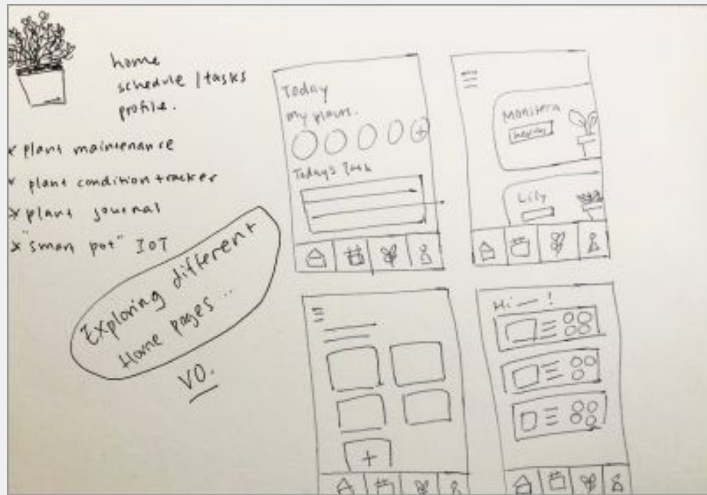 home
schedule / tasks
profile.
* plant maintenance
* plant condition tracker
* plant journal
* "smart pot" IoT
Exploring different
Home pages...
V0.
Today
my plants.
+
Today's Task
Monstera
Lily
+
Hi — !